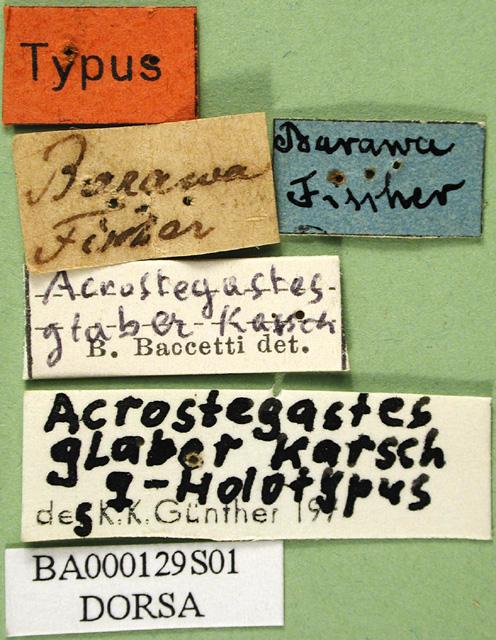 Typus
Barawa
Fischer
Barawa
Fischer
Acrostegastes
glaber Karsch
B. Baccetti det.
Acrostegastes
glaber Karsch
Holotypus
K.K. Günther 197
BA000129S01
DORSA